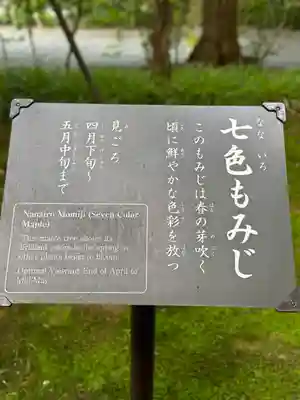 七色もみじ
なな いろ
このもみじは春の芽吹く
頃に鮮やかな色彩を放つ
見ごろ
四月下旬〜
五月中旬まで
Nanairo Momiji (Seven-Color
Maple)
This maple tree shows its
brilliant colors in the spring as
other plants begin to bloom.
Optimal Viewing: End of April to
Mid-May